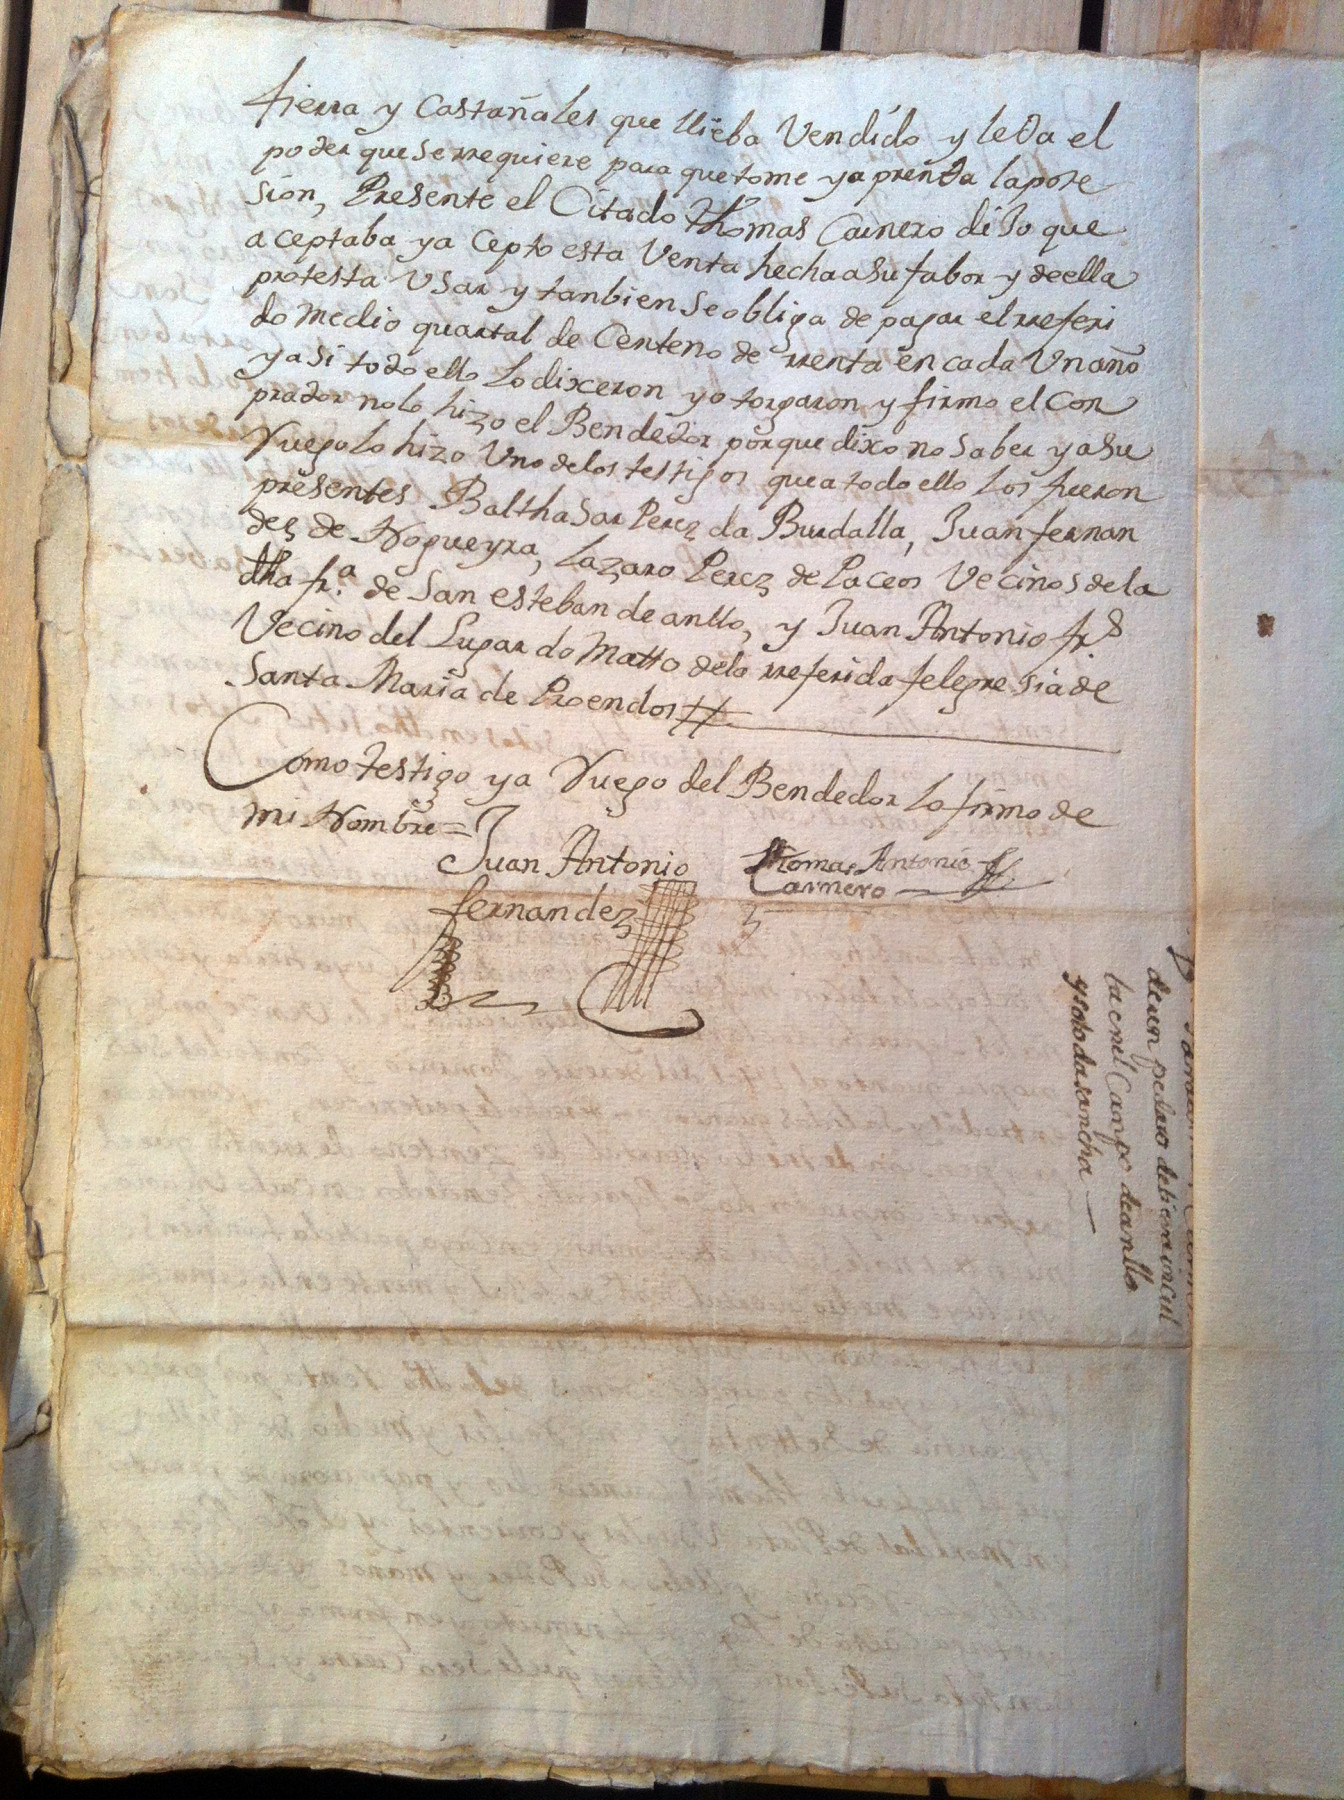 tierra y Castañales que llieba Vendido y leda el
poder que se rrequiere para que tome ya prenda lapose
sion, Presente el Citado Thomas Carnero diJo que
aceptaba ya Cepto esta Venta hecha a su fabor y deella
protesta Usar y tanbien se obliga de pagar el rreferi
do medio quartal de Centeno de rrenta en cada Un año
yasi todo ello lo dixeron yotorgaron y firmo el Con
prador nolo hizo el Bendedor porque dixo no saber yasu
Ruego lo hizo Uno delos testigos que a todo ello los fueron
presentes Balthasar Perez da Burdalla, Juan fernan
dez de Nogueyra, Lazaro Perez de Paceos Vecinos dela
dha fr.ª de San esteban de anllo, y Juan Antonio fr.s
Vecino del Lugar do Matto dela rreferida felegresia de
Santa Maria de Proendos #
Como testigo ya Ruego del Bendedor lo firmo de
mi Nombre =
Juan Antonio
fernandez
Thomas Antonio
Carnero
de un pedazo de
la en el Campo de anllo
y soto da sancha